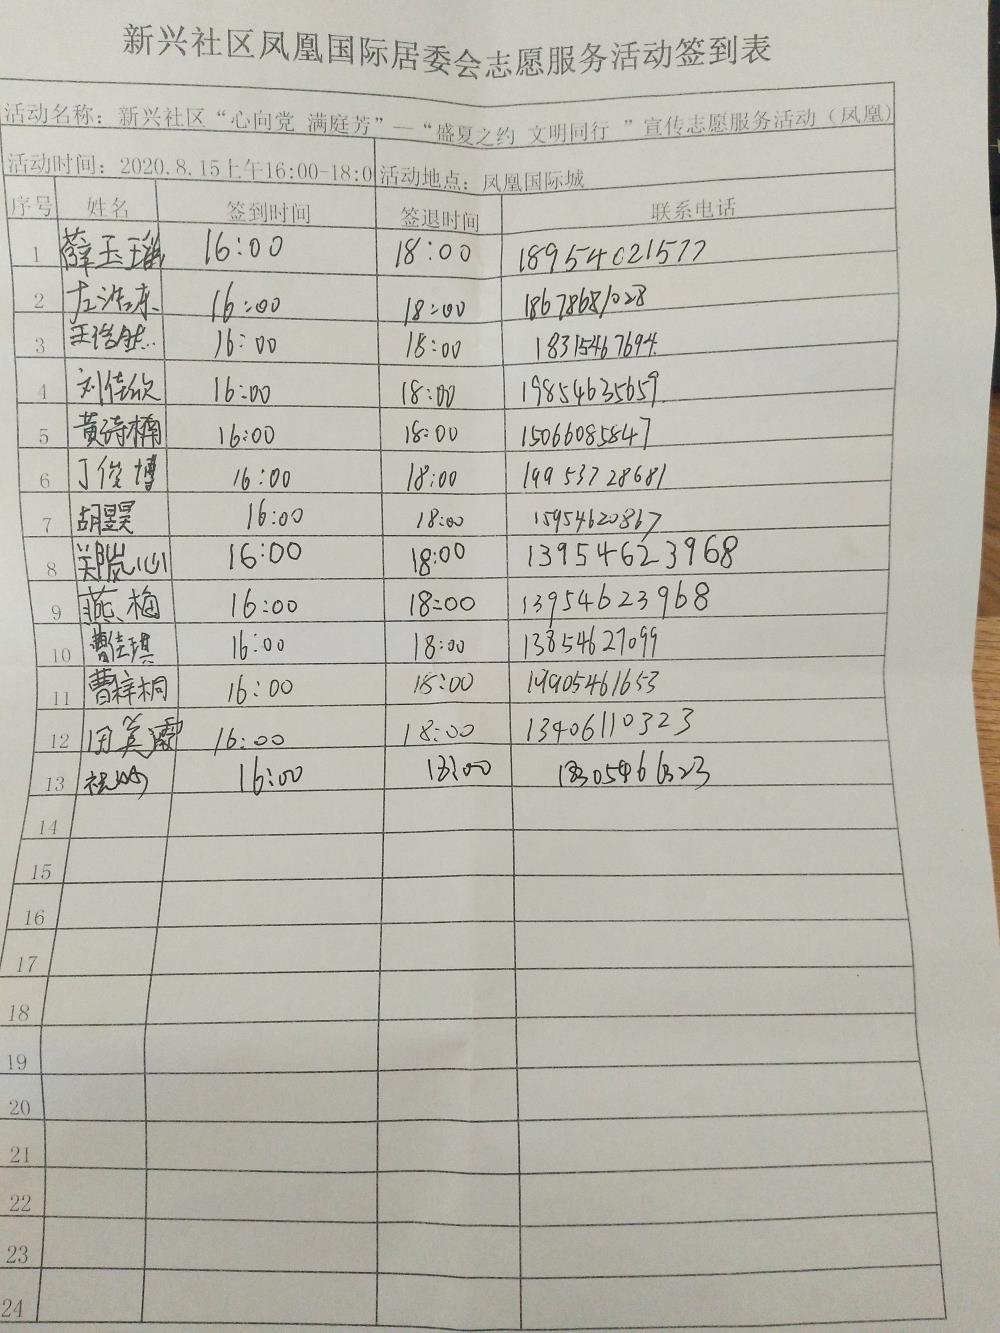 新兴社区凤凰国际居委会志愿服务活动签到表
活动名称：新兴社区“心向党 满庭芳”—“盛夏之约 文明同行 ”宣传志愿服务活动（凤凰）
活动时间：2020.8.15上午16:00-18:0 活动地点：凤凰国际城
序号 姓名 签到时间 签退时间 联系电话
1 薛玉瑶 16:00 18:00 18954021577
2 左浩东 16:00 18:00 18678681028
3 王浩然 16:00 18:00 18315467694
4 刘佳欣 16:00 18:00 19854635659
5 黄诗楠 16:00 18:00 15066085847
6 丁俊博 16:00 18:00 19953728681
7 胡昱昊 16:00 18:00 15954620867
8 郑岚心 16:00 18:00 13954623968
9 燕梅 16:00 18:00 13954623968
10 曹佳琪 16:00 18:00 13854627099
11 曹梓桐 16:00 18:00 19905461653
12 16:00 18:00 13406110323
13 16:00 18:00
14
15
16
17
18
19
20
21
22
23
24